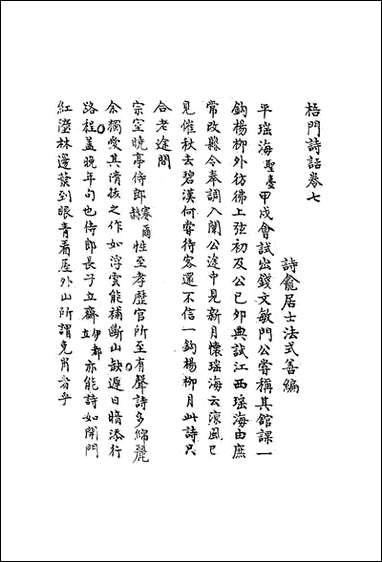 梧門詩話卷七
詩龕居士法式善編
平瑶海聖臺甲戌會試出錢文敏門公嘗稱其館課一
鈎楊柳外彷彿上弦初及公己卯典試江西瑶海由庶
常改縣令奉調入闈公途中見新月懷瑶海云凉風已
見催秋去碧漢何嘗待客還不信一鈎楊柳月此詩只
合老途間
宗室曉亭侍郎塞爾赫性至孝歷官所至有聲詩多綿麗
余獨愛其清拔之作如浮雲能補斷山缺遲日暗添行
路程盖晚年句也侍郎長子立齋伊都立亦能詩如開門
紅溼林邊葉到眼青看屋外山所謂克肖者乎